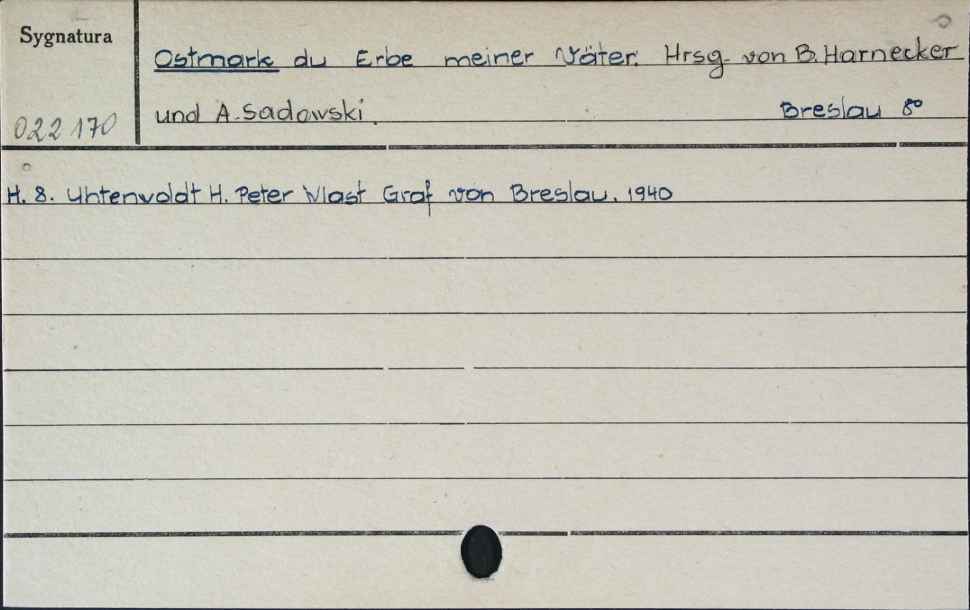 Sygnatura
Ostmark du Erbe meiner Väter. Hrsg. von B. Harnecker
022 170
und A. Sadowski. Breslau 8°
H. 8. Uhtenwoldt H. Peter Wlast Graf von Breslau. 1940